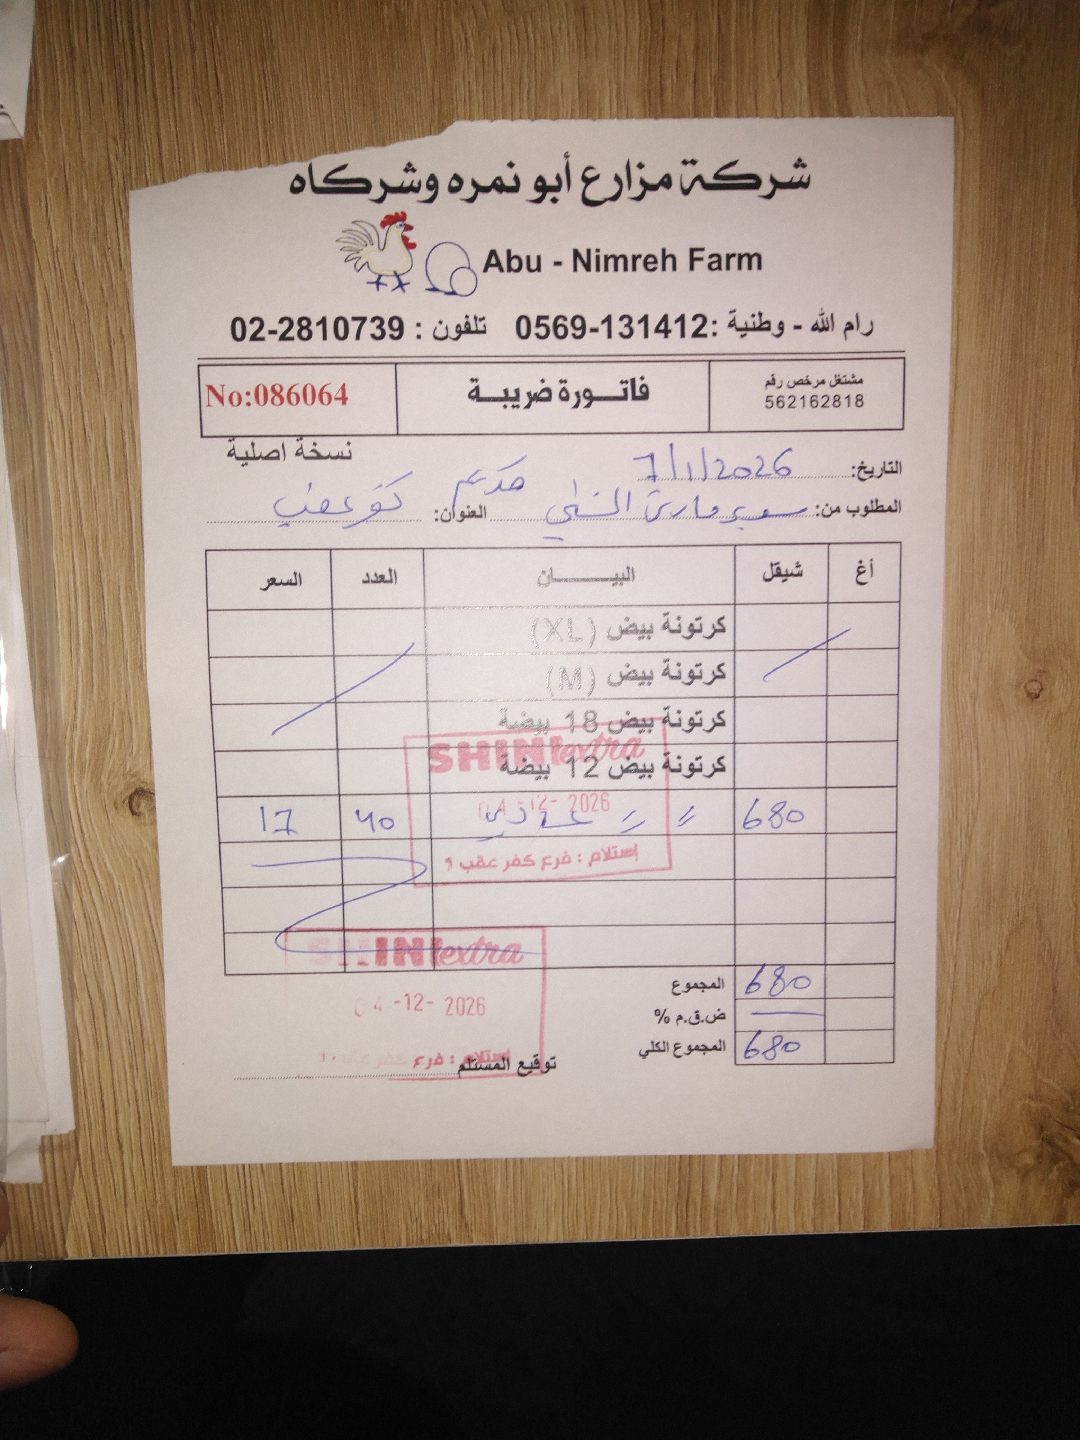 شركة مزارع أبو نمره وشركاه
Abu - Nimreh Farm
رام الله - وطنية :0569-131412 تلفون : 02-2810739
مشتغل مرخص رقم
562162818
فاتـورة ضريبـة
No:086064
نسخة اصلية
التاريخ: 7/1/2026
المطلوب من: سوبر ماركت الشني قديم العنوان: كفر عقب
أغ شيقل البيـــــان العدد السعر
كرتونة بيض (XL)
كرتونة بيض (M)
كرتونة بيض 18 بيضة
كرتونة بيض 12 بيضة
680 " " عادي 40 17
SHINI extra
04-12-2026
إستلام : فرع كفر عقب 1
المجموع 680
ض.ق.م %
المجموع الكلي 680
SHINI extra
04-12-2026
إستلام : فرع كفر عقب 1
توقيع المستلم